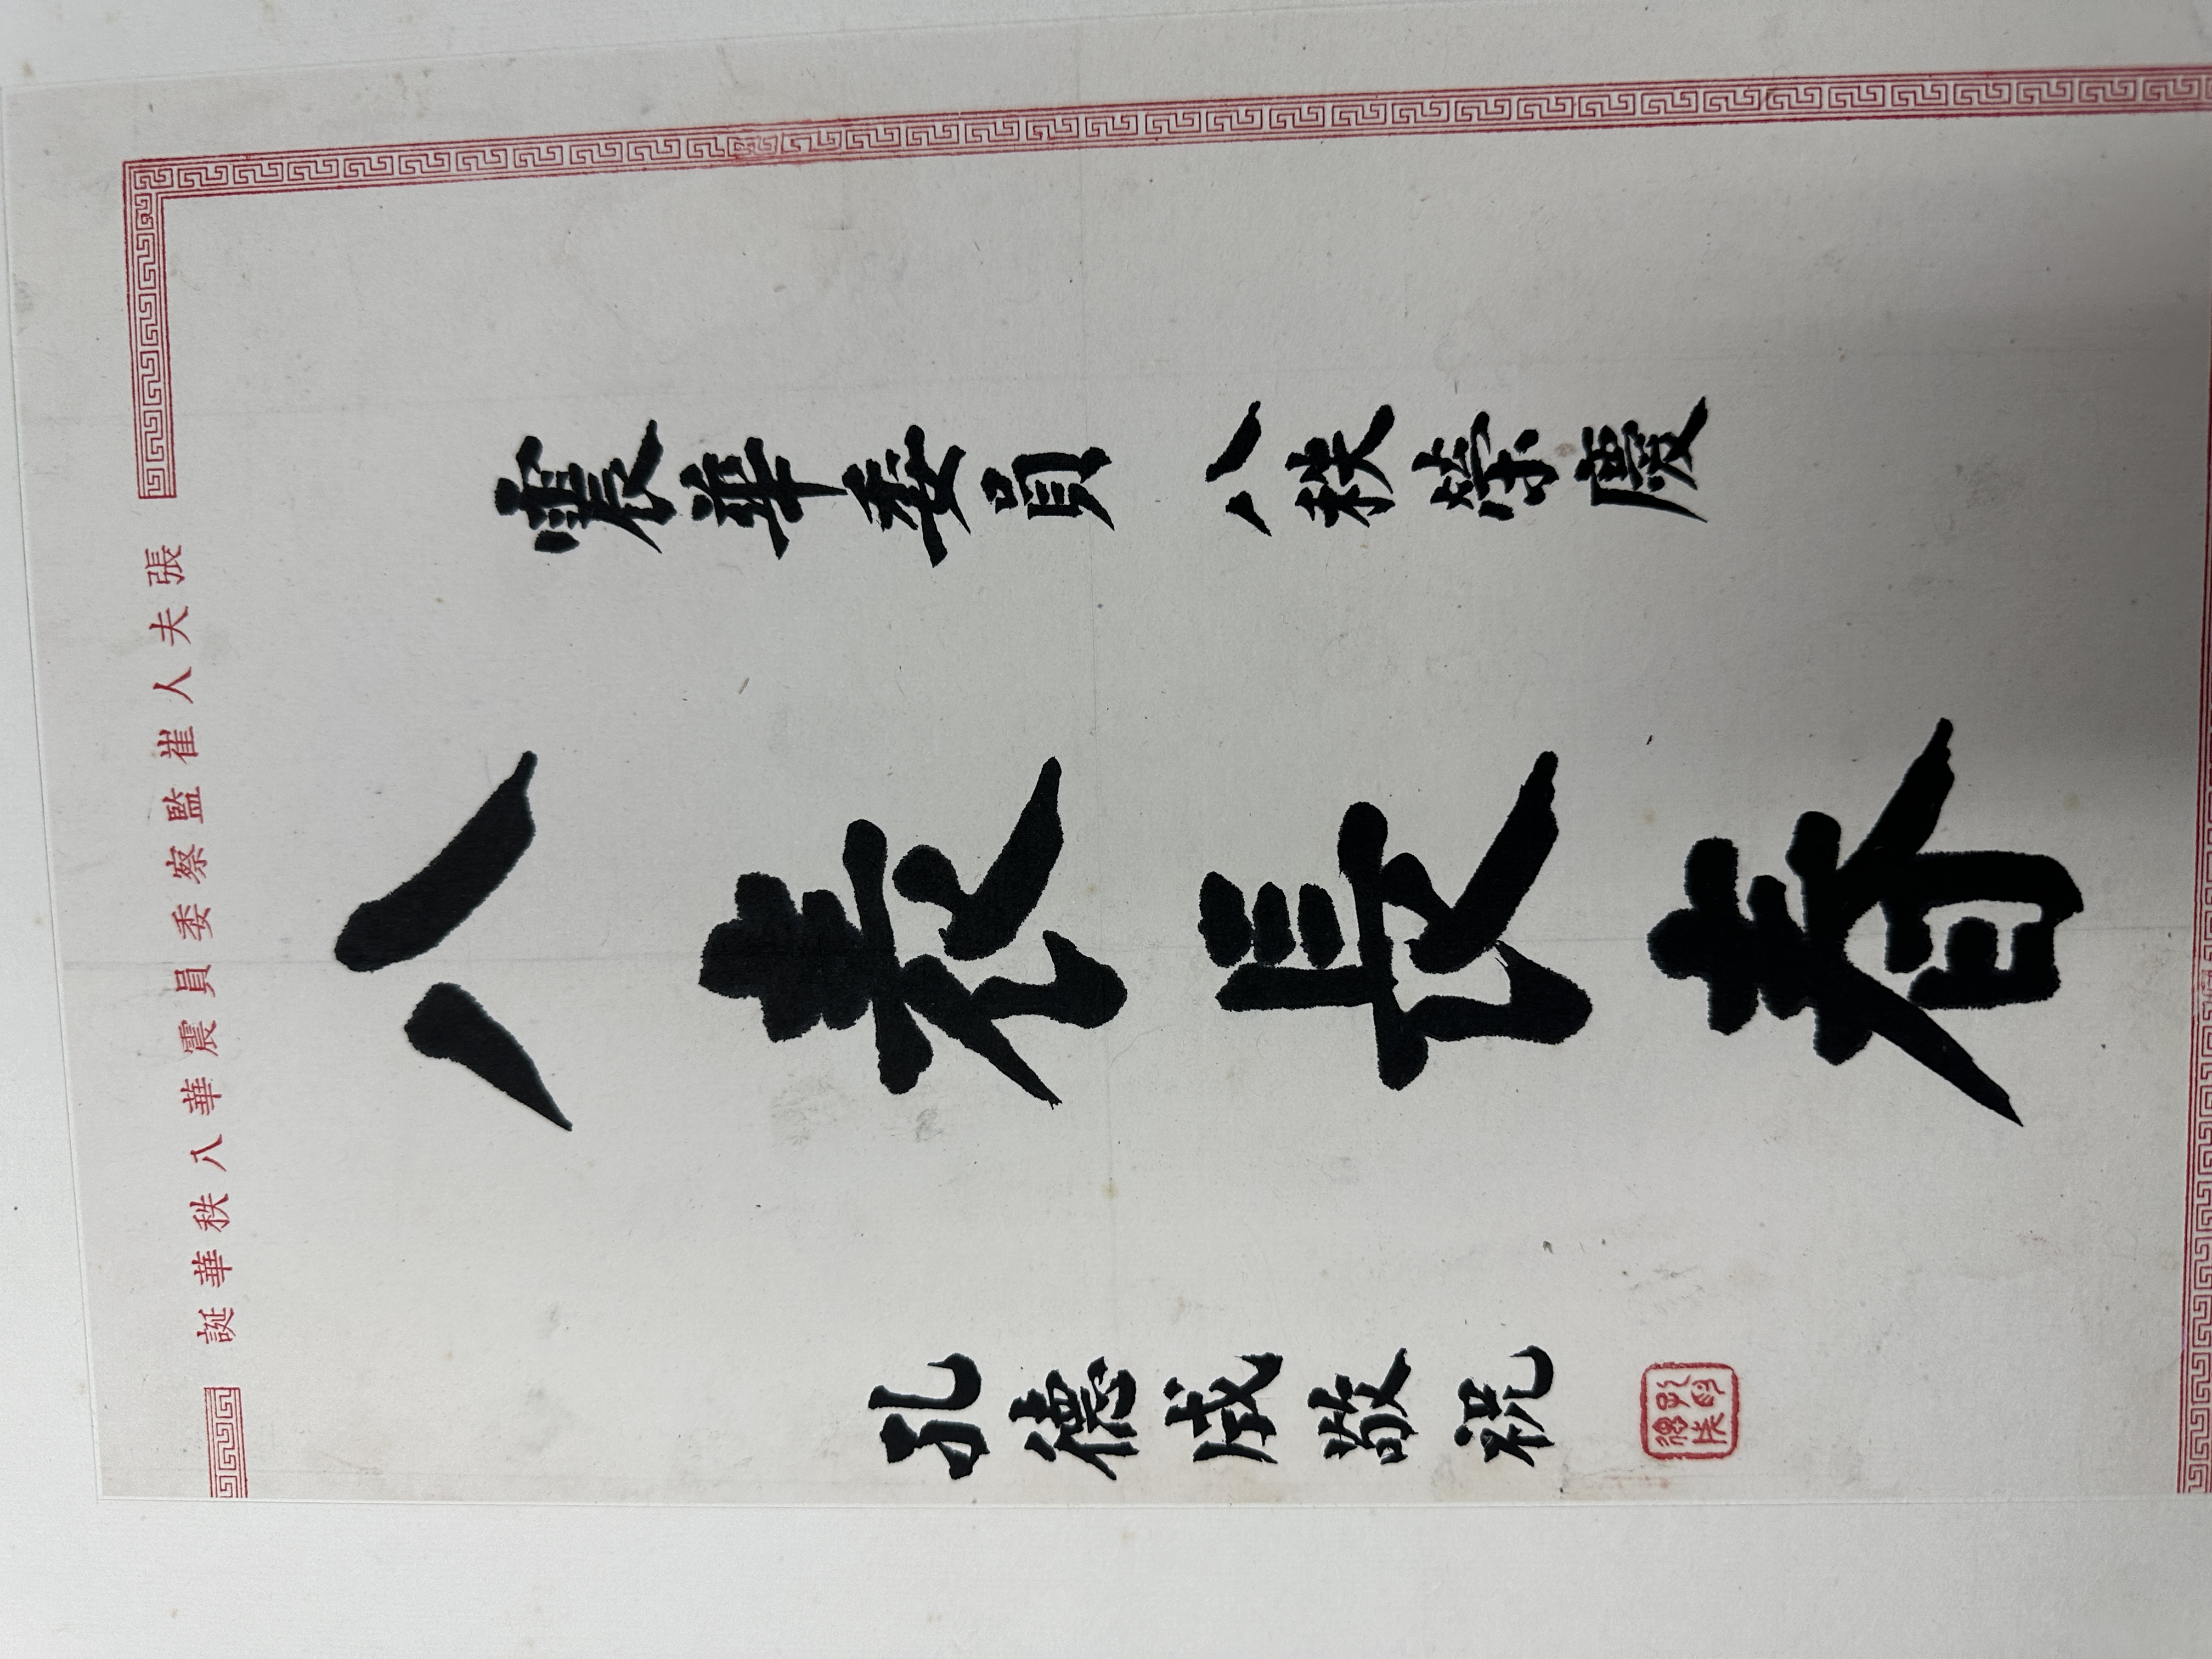 張夫人崔監察委員震華八秩華誕
震華委員 八秩榮慶
八表長春
孔德成敬祝